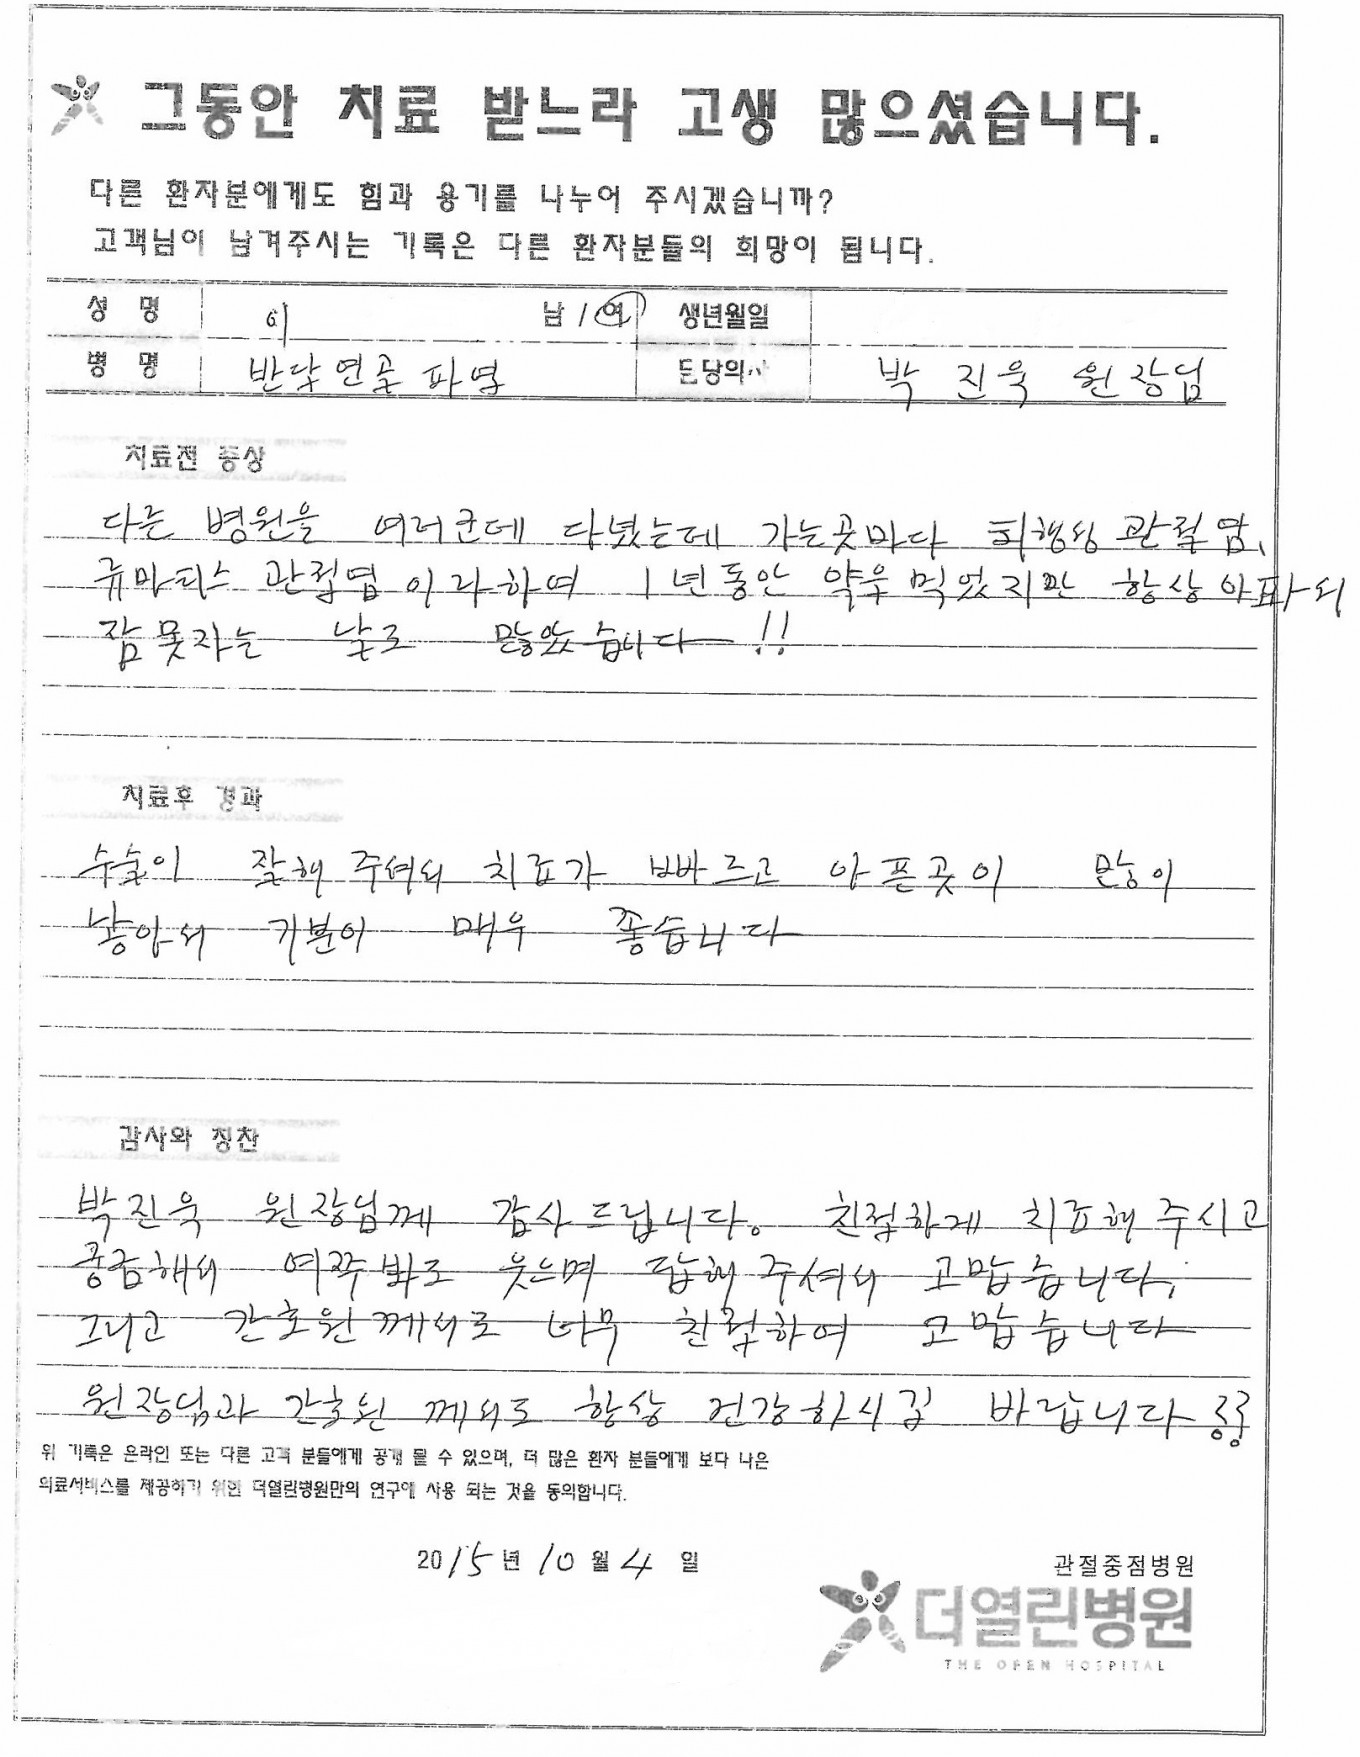 그동안 치료 받느라 고생 많으셨습니다.
다른 환자분에게도 힘과 용기를 나누어 주시겠습니까?
고객님이 남겨주시는 기록은 다른 환자분들의 희망이 됩니다.
성 명 이 남 / 여 생년월일
병 명 반달연골 파열 담당의사 박 진욱 원장님
치료전 증상
다른 병원을 여러군데 다녔는데 가는곳마다 퇴행성 관절염,
류마티스 관절염 이라하여 1년동안 약을 먹었지만 항상 아파서
잠못자는 날도 많았습니다 !!
치료후 경과
수술이 잘해 주셔서 치료가 빠르고 아픈곳이 많이
낳아서 기분이 매우 좋습니다
감사와 칭찬
박진욱 원장님께 감사드립니다. 친절하게 치료해 주시고
궁금해서 여쭈봐도 웃으며 답해 주셔서 고맙습니다,
그리고 간호원께서도 너무 친절하여 고맙습니다
원장님과 간호원 께서도 항상 건강하시길 바랍니다
위 기록은 온라인 또는 다른 고객 분들에게 공개 될 수 있으며, 더 많은 환자 분들에게 보다 나은
의료서비스를 제공하기 위한 더열린병원만의 연구에 사용 되는 것을 동의합니다.
2015년 10월 4일
관절중점병원
더열린병원
THE OPEN HOSPITAL